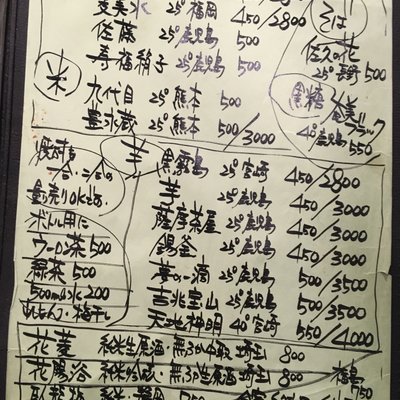 25°福岡 450/2800
佐藤 25°鹿児島 500
25°鹿児島 500
米
九代目 25°熊本 500
豊永蔵 25°熊本 500/3000
そば
佐久の花
25°長野 500
黒糖
奄美ブラック
40°鹿児島 550
芋
黒霧島 25°宮崎 450/2800
芋 25°鹿児島 450/3000
薩摩茶屋 25°鹿児島 450/3000
錫釜 25°鹿児島 450/3000
夢の一滴 25°鹿児島 500/3500
吉兆宝山 25°鹿児島 500/3500
天地神明 40°宮崎 550/4000
量り売りOK
ボトル用に
ウーロン茶 500
緑茶 500
500ml水 200
れもん・梅干し
花菱 純米生原酒・無ろか中取 埼玉 800
花陽浴 純米吟醸・無ろか生原酒・埼玉 800
福島
750